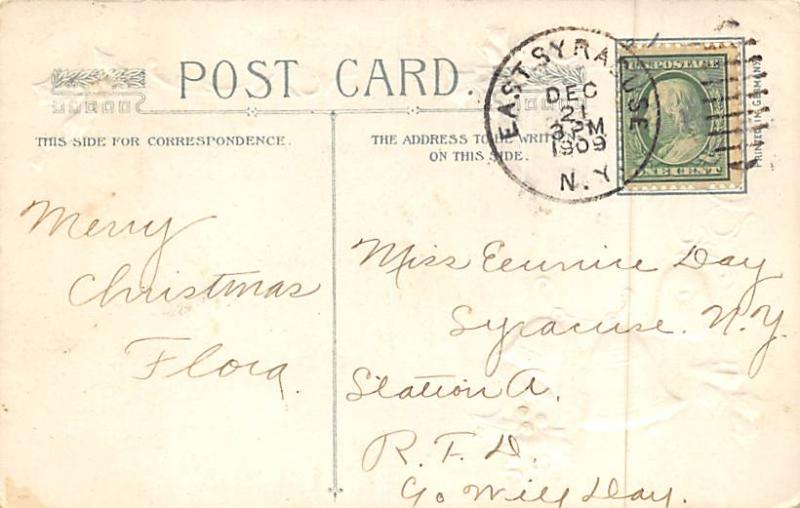 POST CARD.
THIS SIDE FOR CORRESPONDENCE.
THE ADDRESS TO BE WRITTEN
ON THIS SIDE.
EAST SYRACUSE
DEC
21
3 PM
1909
N.Y.
U.S. POSTAGE
ONE CENT
PRINTED IN GERMANY
Merry
Christmas
Flora.
Miss Eeunice Day
Syracuse. N.Y.
Station A.
R.F.D.
℅ Will Day.